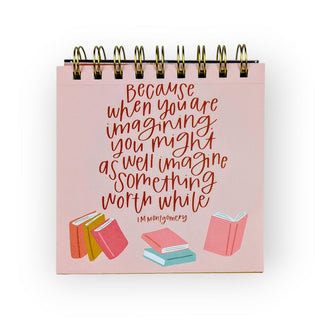 Because
when you are
imagining,
you might
as well imagine
something
worth while
LM Montgomery